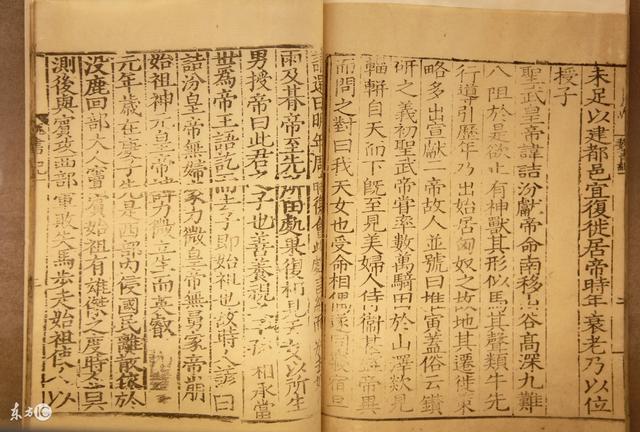 未足以建都邑宜復徙居帝時年衰老乃以位
授子
聖武皇帝諱詰汾獻帝命南移山谷高深九難
八阻於是欲止有神獸其形似馬其聲類牛先
行導引歷年乃出始居匈奴之故地其遷徙策
略多出宣獻二帝故人並號曰推寅蓋俗云鑽
研之義初聖武帝嘗率數萬騎田於山澤欻見
輜軿自天而下既至見美婦人侍衛甚盛帝異
而問之對曰我天女也受命相偶遂同寢宿旦
請還曰明年周時復會此處
雨及朞帝至先所田處果復相見天女以所生
男授帝曰此君之子也善養視之子孫相承當
世爲帝王語訖而去子即始祖也故時人諺曰
詰汾皇帝無婦家力微皇帝無舅家帝崩
始祖神元皇帝諱力微立生而英叡
元年歲在庚子先是西部內侵國民離散依於
没鹿回部大人竇賓始祖有雄傑之度時人莫
測後與竇賓攻西部軍敗失馬步走始祖使人以
东方IC